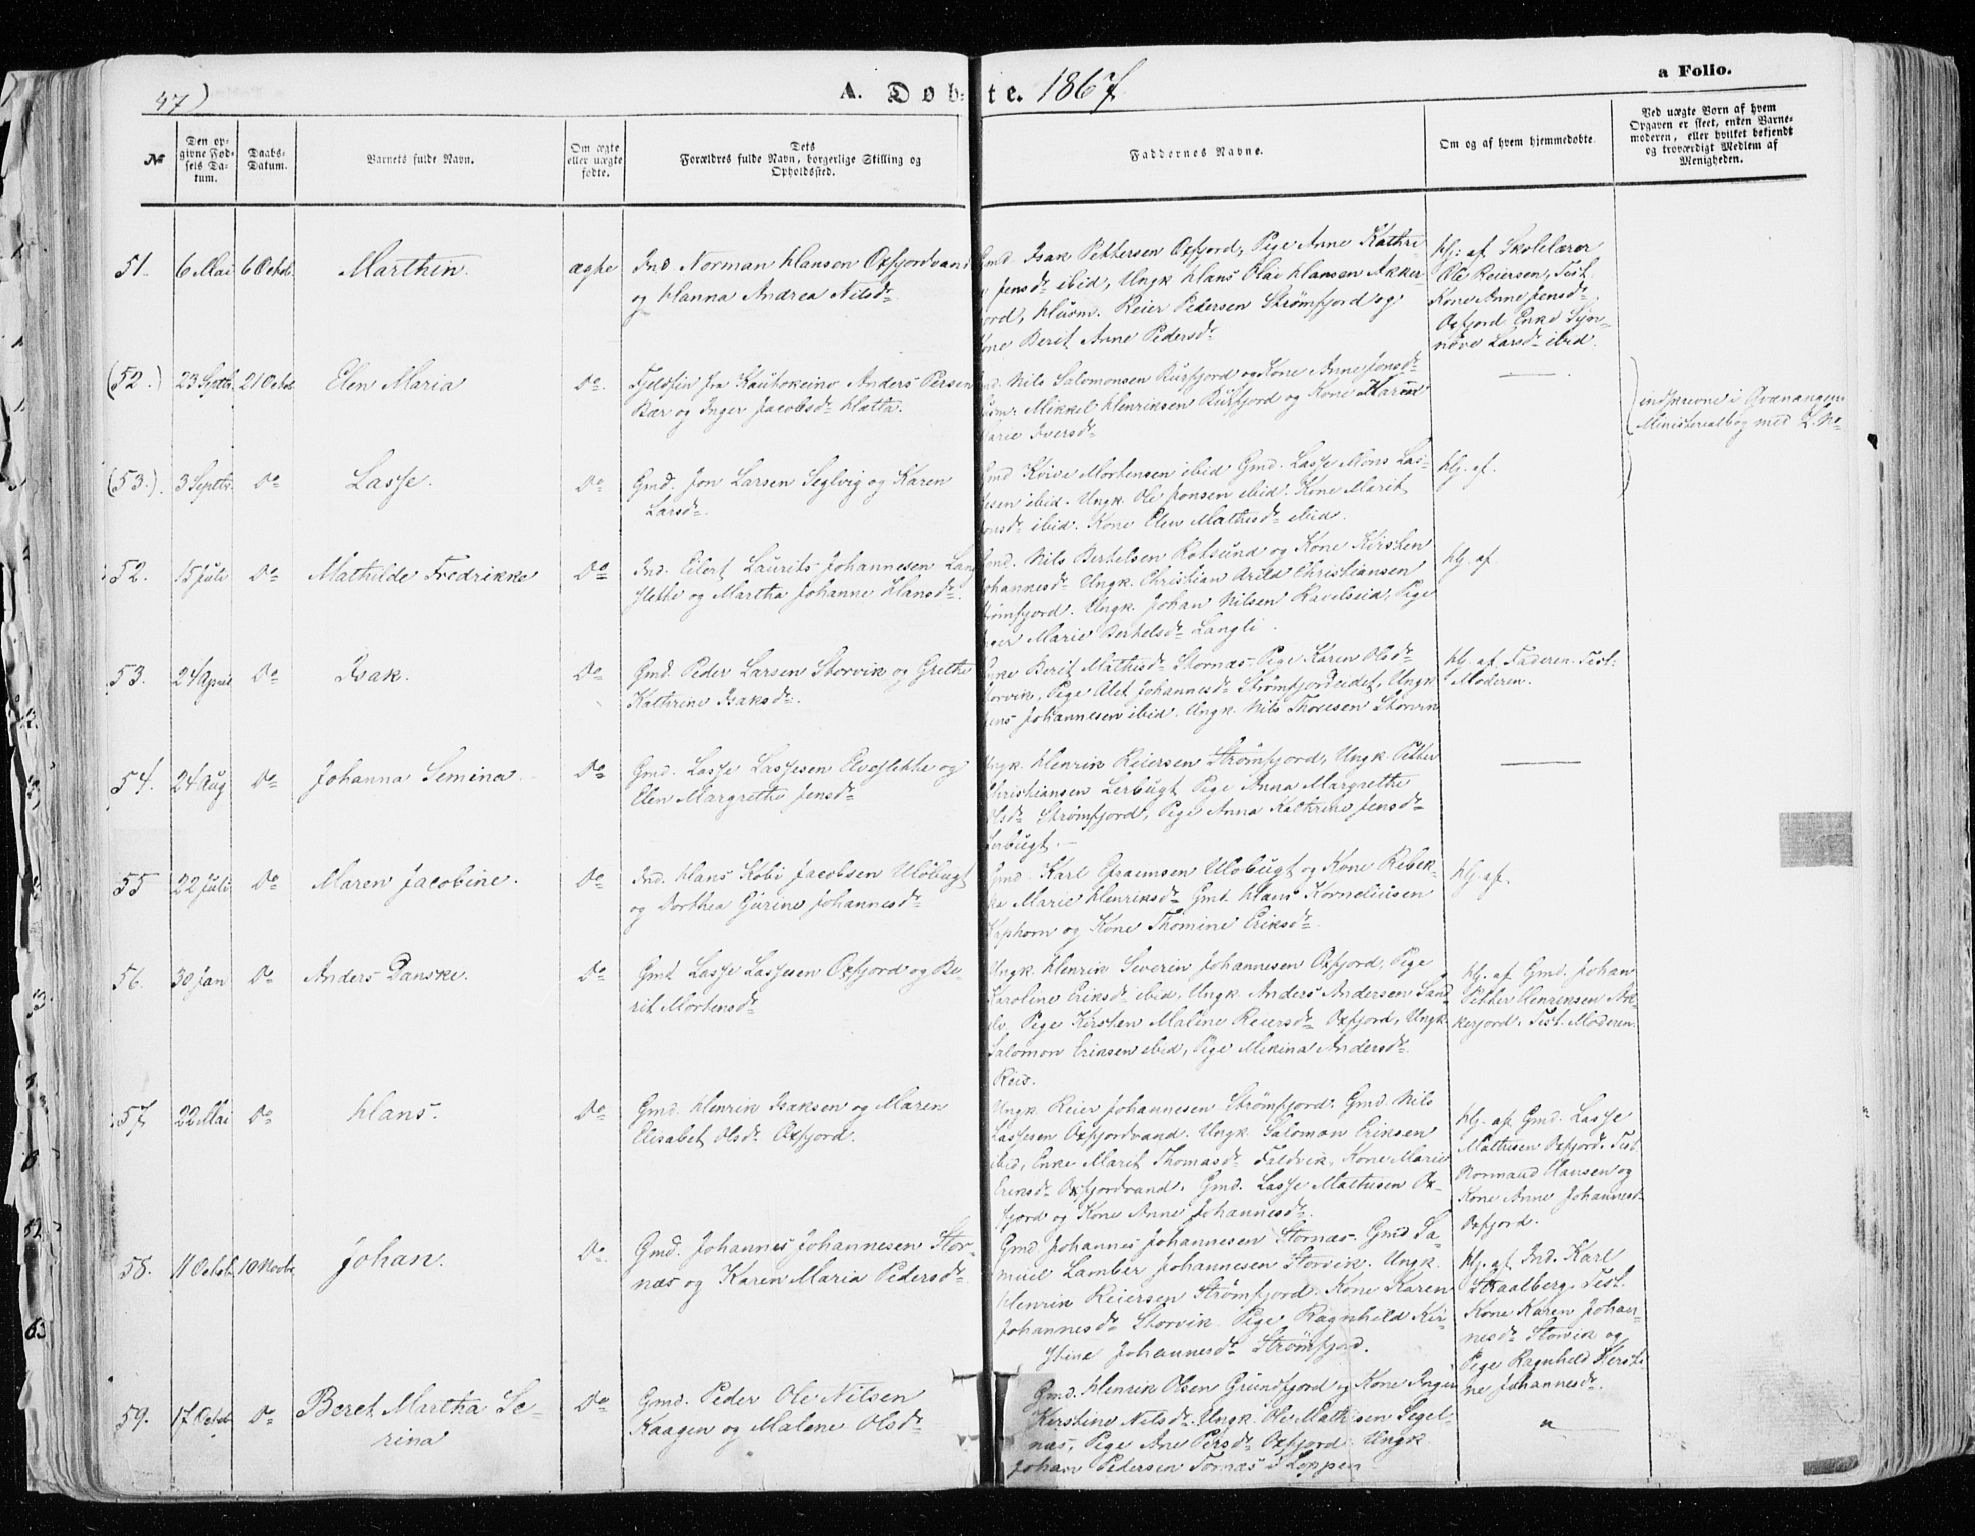 47)
A. Døbte. 1867
a Folio.
№
Den opgivne Fødsels Datum.
Daabs-Datum.
Barnets fulde Navn.
Om ægte eller uægte fødte.
Dets Forældres fulde Navn, borgerlige Stilling og Opholdssted.
Faddernes Navne.
Om og af hvem hjemmedøbte.
Ved uægte Børn af hvem Opgaven er skeet, enten Barnemoderen, eller hvilket bekjendt og troværdigt Medlem af Menigheden.
51. 6 Mai 6 Octob. Marthin. ægte
Ind. Norman Hansen Oxfjordvand
og Hanna Andrea Nilsd.
Gmd. Isak Pettersen Oxfjord, Pige Anne Kathri-
Jensd. ibid, Ungk Hans Olai Hansen Akker-
jord, Husm. Reier Pedersen Strømfjord og
Kone Berit Anne Pedersd.
Hj. af Skolelærer
Ole Reiersen, Test.
Kone Anne Jensd.
Oxfjord Enke Syn-
nøve Larsd. ibid.
(52.) 23 Septbr. 21 Octob. Elen Maria Do.
Fjeldfin fra Kautokeino Anders Persen
Bær og Inger Jacobsd. Hætta.
Nils Salomonsen Burfjord og Kone Anne Jonsd.
Mikkel Henriksen Burfjord og Kone Karen
Marie Iversd.
indskrevne i Qvænangens
Ministerialbog med L. No
(53.) 3 Septbr. Do Lasse. Do
Gmd. Jon Larsen Seglvig og Karen
Larsd.
Gmd Koive Mortensen ibid Gmd. Lasse Mons Las-
sen ibid. Ungk. Ole Jonsen ibid. Kone Marit
Jonsd. ibid. Kone Elen Mathisd. ibid.
Hj. af.
52. 15 Juli Do Mathilde Fredrikke Do
Ind. Eilert Laurits Johannesen Lang
slette og Martha Johanne Hansd.
Gmd. Nils Bertelsen Rotsund og Kone Kirsten
Johannesd. Ungk. Christian Arild Christiansen
Strømfjord. Ungk. Johan Nilsen Ravelseid, Pige
Marie Bertelsd. Langli.
Hj. af.
53. 24 April Do Isak. Do
Gmd. Peder Larsen Storvik og Grethe
Kathrine Isaksd.
Enke Berit Mathisd. Stornæs. Pige Karen Olsd.
Storvik, Pige Alet Johannesd. Strømfjordeidet, Ungk
Jens Johannesen ibid. Ungk. Nils Thoresen Storvik
Hj. af. Faderen. Test.
Moderen.
54. 24 Aug Do Johanna Semina. Do
Gmd. Lasse Lassesen Elveslette og
Elen Margrethe Jensd.
Ungk. Henrik Reiersen Strømfjord, Ungk. Petter
Christiansen Lerbugt Pige Anna Margrethe
Olsd. Strømfjord, Pige Anna Kathrine Jensd.
Lerbugt.
55 22 Juli Do Maren Jacobine. Do
Ind. Hans Kobi Jacobsen Uløbugt
og Dorthea Gurine Johannesd.
Gmd. Karl Efraimsen Uløbugt og Kone Rebek-
ka Marie Henriksd. Gmt Hans Korneliusen
Kaphorn og Kone Thomine Eriksd.
Hj. af.
56. 30 Jan Do Anders Danske. Do
Gmt Lasse Lassesen Oxfjord og Be-
rit Mortensd.
Ungk. Henrik Severin Johannesen Oxfjord, Pige
Karoline Eriksd. ibid, Ungk. Anders Andersen Sand-
elv, Pige Kirsten Maline Reiersd. Oxfjord, Ungk.
Salomon Eriksen ibid, Pige Mikina Andersd.
Reis.
Hj. af Gmd. Johan
Petter Henriksen Ak-
kerjord. Test. Moderen.
57. 22 Mai Do Hans. Do
Gmd. Henrik Isaksen og Maren
Elisabet Olsd. Oxfjord.
Ungk. Reier Johannesen Strømfjord. Gmd. Nils
Lassesen Oxfjordvand. Ungk. Salomon Eriksen
ibid, Enke Marit Thomasd. Faldvik, Kone Marie
Eriksd. Oxfjordvand. Gmd. Lasse Mathisen Ox-
fjord og Kone Anne Johannesd.
Hj. af Gmd. Lasse
Mathisen Oxfjord. Test.
Normand Hansen og
Kone Anne Johannesd.
Oxfjord.
58. 11 Octob. 10 Novbr. Johan. Do.
Gmd. Johannes Johannesen Stor-
næs og Karen Maria Pedersd.
Gmd. Johannes Johannesen Stornæs. Gmd Sa-
muel Lamber Johannesen Storvik. Ungk.
Henrik Reiersen Strømfjord. Kone Karen
Johannesd. Storvik. Pige Ragnhild Kir-
stine Johannesd. Strømfjord.
Hj. af Ind. Karl
Straalberg. Test.
Kone Karen Johan-
nesd. Storvik og
Pige Ragnhild Kirsti-
ne Johannesd.
59. 17 Octob. Do Beret Martha Se-
rina Do
Gmd. Peder Ole Nilsen
Kaagen og Malene Olsd.
Gmd. Henrik Olsen Grundfjord og Kone Inger
Kirstine Nilsd. Ungk. Ole Mathisen Segel-
næs, Pige Ane Persd. Oxfjord. Ungk.
Johan Pedersen Tornæs i Loppen